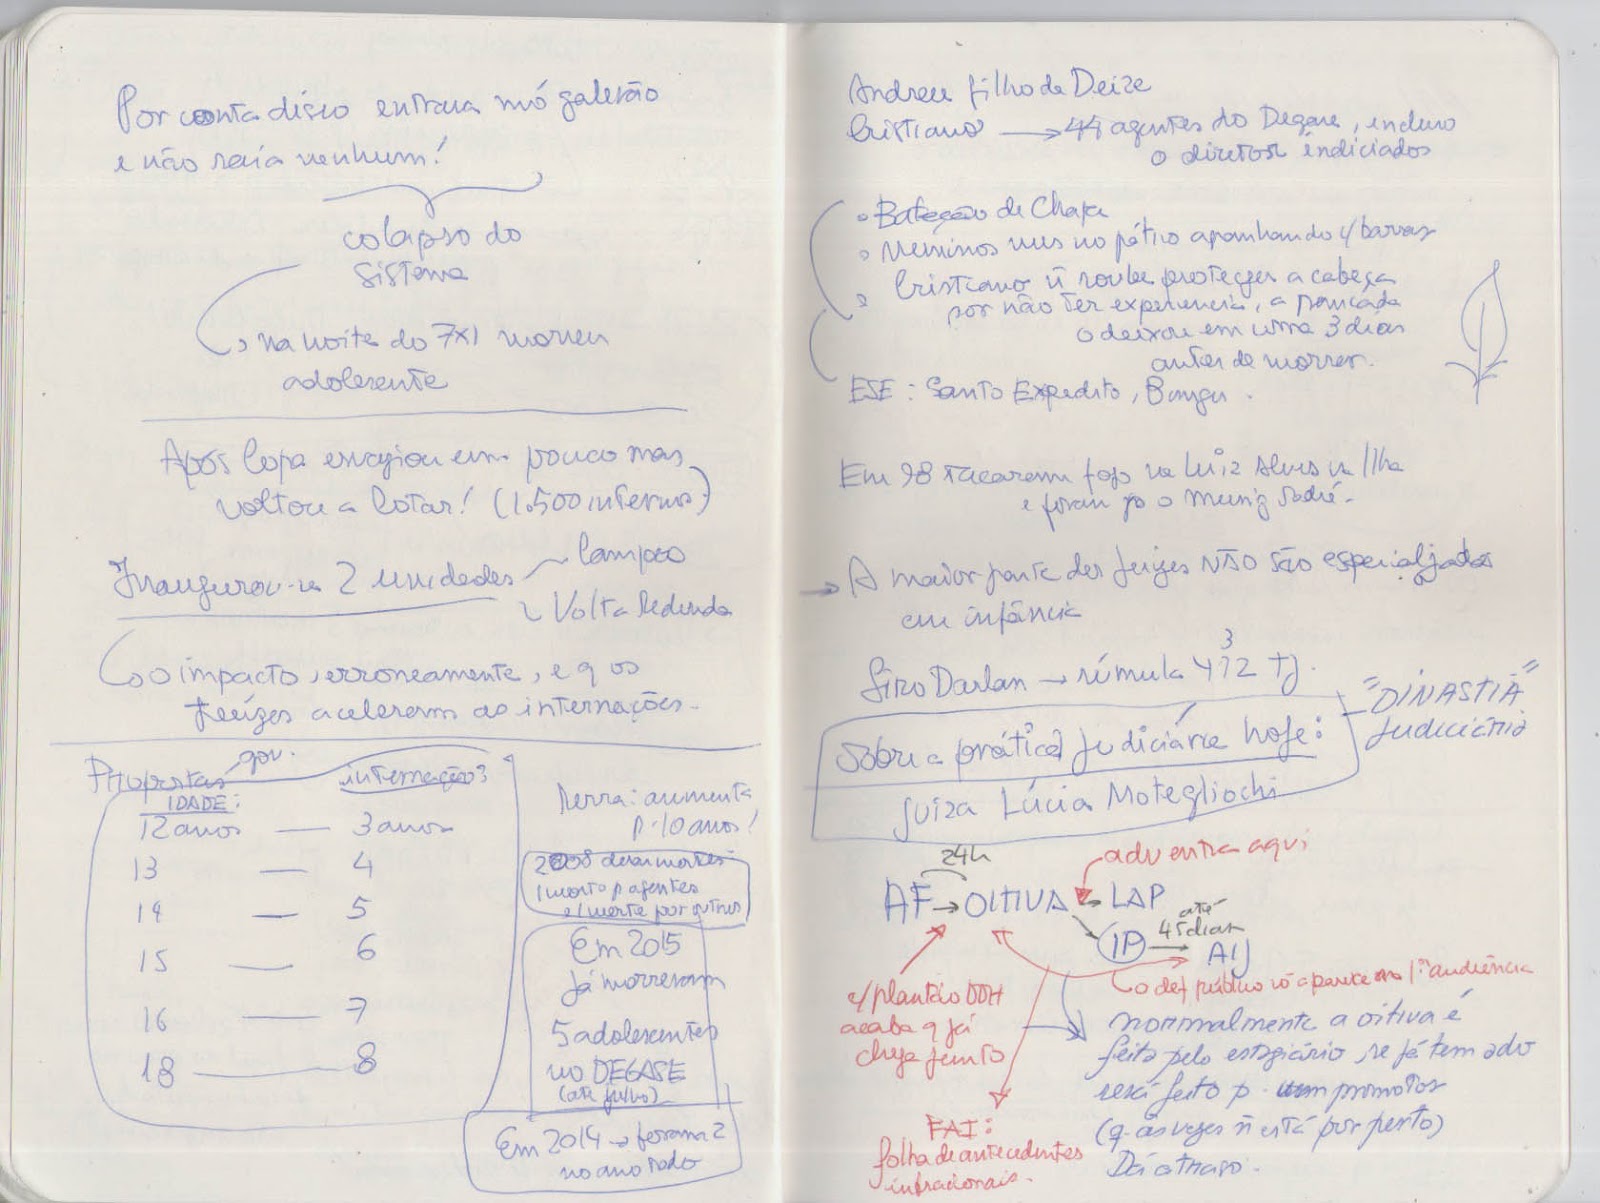 Por conta disso entrava mó galerão
e não saía nenhum!
colapso do
sistema
na noite do 7x1 morreu
adolescente
Após Copa esvaziou um pouco mas
voltou a lotar! (1.500 internos)
Inaugurou-se 2 unidades
Campos
Volta Redonda
o impacto, erroneamente, é q os
juízes aceleram as internações.
Propostas gov.
internação?
IDADE:
12 anos — 3 anos
13 — 4
14 — 5
15 — 6
16 — 7
18 — 8
Serra: aumenta
p. 10 anos!
2008
1 morto p agentes
e 1 morte por outros
Em 2015
já morreram
5 adolescentes
no DEGASE
(até julho)
Em 2014 → foram 2
no ano todo
Andreu filho de Deize
Cristiano → 44 agentes do Degase, incluso
o diretor indiciados
Bateção de Chapa
Meninos nus no pátio apanhando c/ barras
Cristiano ñ soube proteger a cabeça
por não ter experiencia, a pancada
o deixou em coma 3 dias
antes de morrer.
ESE: Santo Expedito, Bangu.
Em 98 tacaram fogo na Luiz Alves na Ilha
e foram p o Muniz Sodré.
→ A maior parte dos juízes NÃO são especializados
em infância
3
Siro Darlan → súmula 492 TJ.
"DINASTIA"
Judiciária
Sobre a prática judiciária hoje:
Juíza Lúcia Motegliochi
24h
adv entra aqui
AF → OITIVA → LAP
até
45 dias
IP → AIJ
o def público só aparece na 1ª audiência
c/ plantão DDH
acaba q já
chega junto
normalmente a oitiva é
feita pelo estagiário se já tem adv
será feito p. um promotor
(q. às vezes ñ está por perto)
Dá atraso.
FAI:
folha de antecedentes
infracionais.